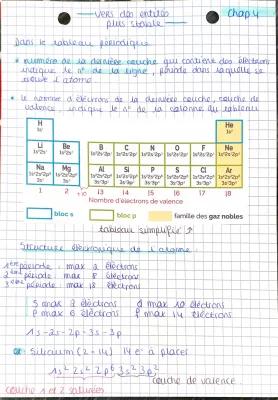 Vers des entités
plus stable
Chap 4
Dans le tableau périodique
• numéro de la dernière couche qui contient des électrons
indique le n° de la ligne, période dans laquelle se
trouve l'atome
• le nombre d'électrons de la dernière couche, couche de
valence, indique le n° de la colonne du tableau
H He
1s¹ 1s²
Li Be B C N O F Ne
Na Mg Al Si P S Cl Ar
1 2 +10 13 14 15 16 17 18
Nombre d'électrons de valence
bloc s bloc p famille des gaz nobles
tableau simplifié ↑
Structure électronique de l'atome :
1ère période : max 2 électrons
2ème période : max 8 électrons
3ème période : max 18 électrons
S max 2 électrons d max 10 électrons
p max 6 électrons f max 14 électrons
1s - 2s - 2p - 3s - 3p
Silicium (Z = 14) 14 é à placer
1s² 2s² 2p⁶ 3s² 3p²
couche de valence
couche 1 et 2 saturées